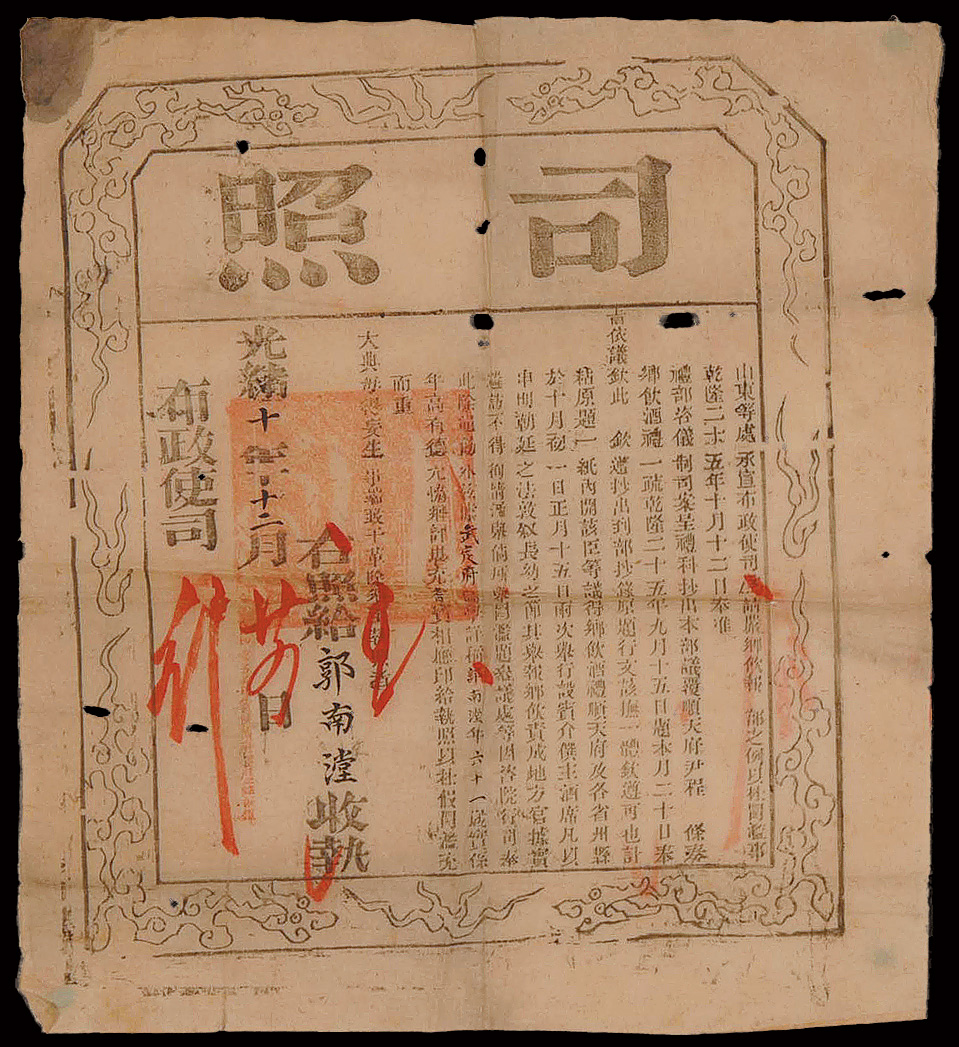 司照
山東等處承宣布政使司為請嚴鄉飲報部之例以杜冒濫事
乾隆二十五年十月十二日奉准
禮部咨儀制司案呈禮科抄出本部議覆順天府尹程條奏
鄉飲酒禮一疏乾隆二十五年九月十五日題本月二十日奉
旨依議欽此欽遵抄出到部抄錄原題行文該撫一體欽遵可也計
粘原題一紙內開該臣等議得鄉飲酒禮順天府及各省州縣
於十月初一日正月十五日兩次舉行設賓介僎主酒席凡以
申明朝延之法敦敘長幼之節其舉報鄉飲責成地方官據實
不得徇情濫舉 冒濫題參議處等因咨院行司奉
此除 外 府 南漟年六十一歲實係
年高有德 允協 堪充耆賓相應印給執照以杜假冒濫充
而重
大典 毋得妄生事端致干革除 者
右照給郭南漟收執
光緒十年十二月 日
布政使司